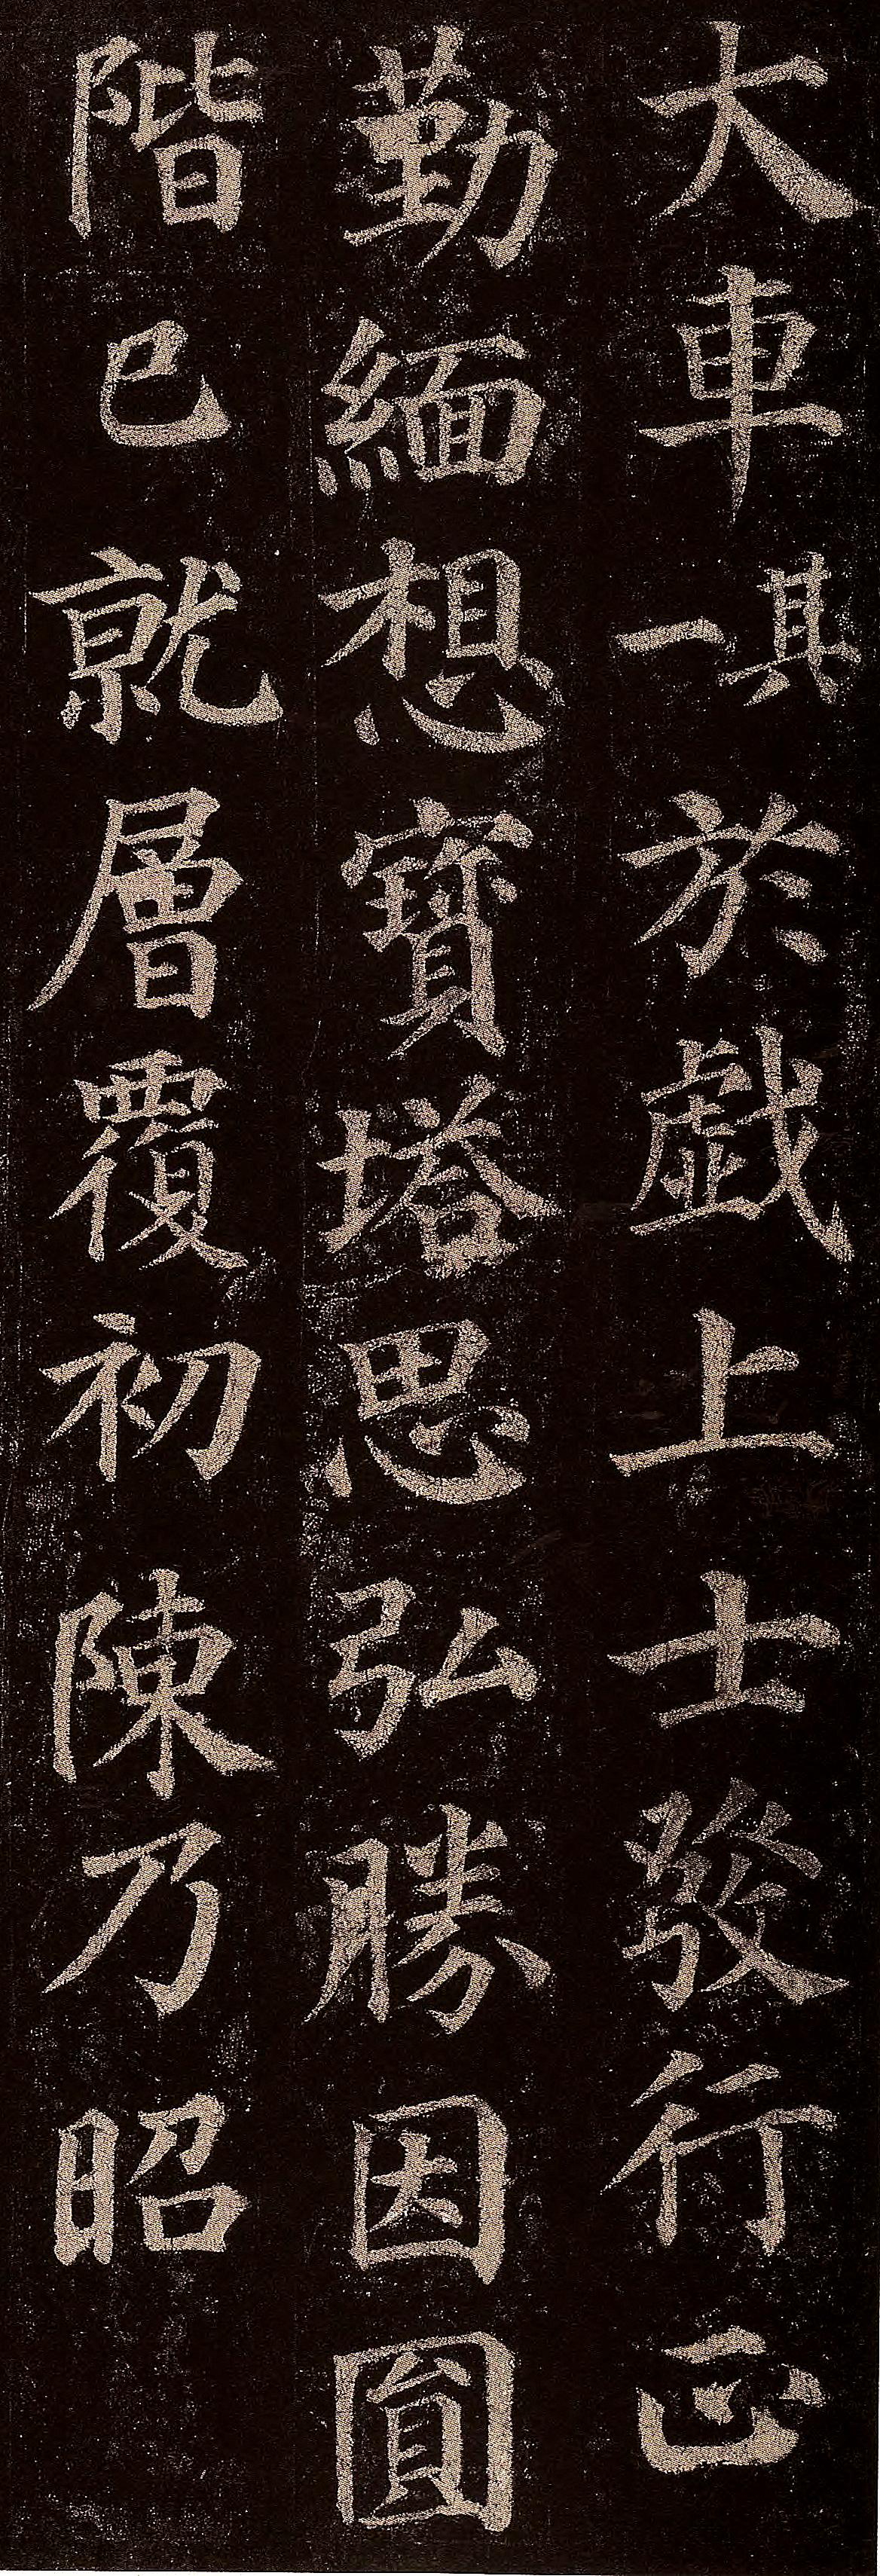 大車其一於戲上士發行正
勤緬想寶塔思弘勝因圓
階已就層覆初陳乃昭